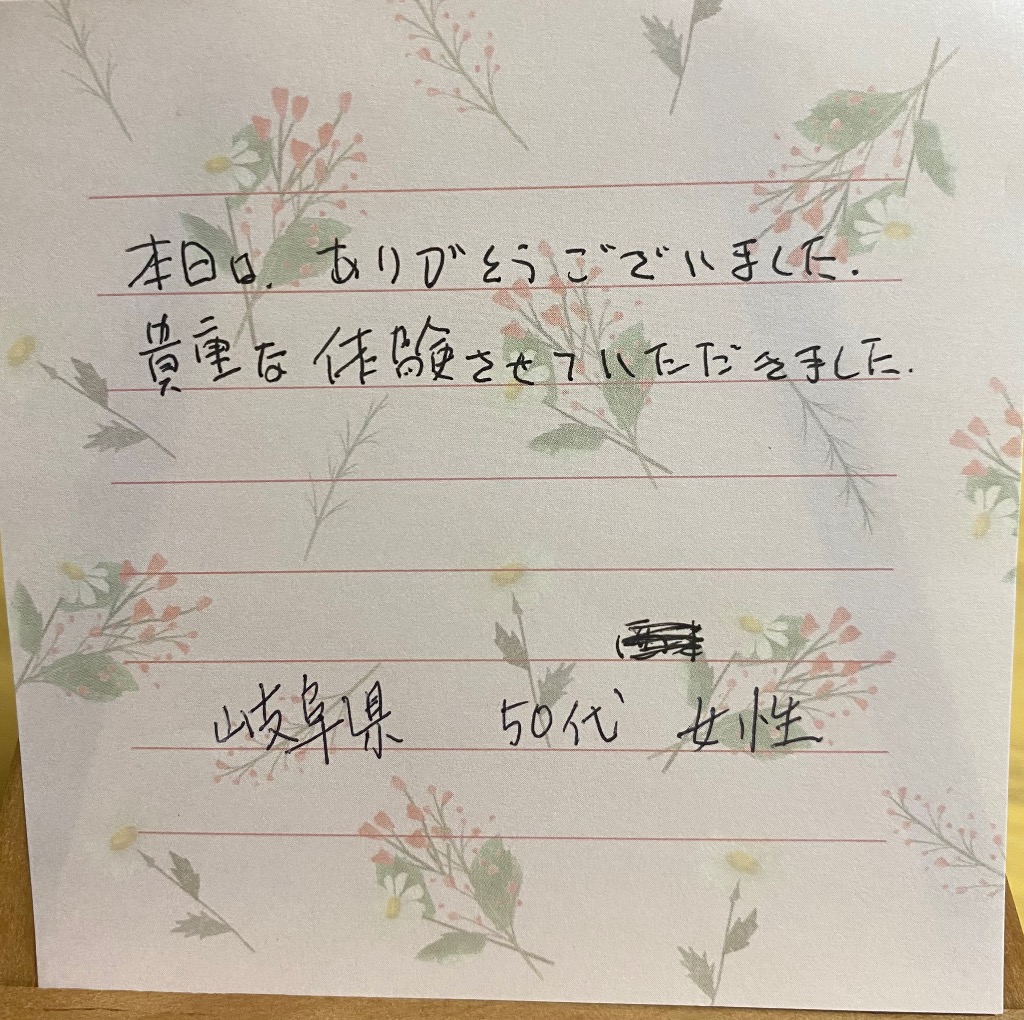 本日は、ありがとうございました。
貴重な体験させていただきました。
岐阜県 50代 女性